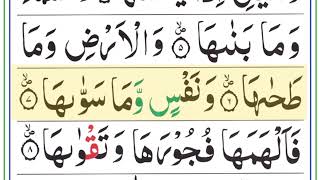 وَمَا بَنٰىهَا ۪ۙ ۵ وَالۡاَرۡضِ وَمَا
طَحٰىهَا ۪ۙ ۶ وَنَفۡسٍ وَّمَا سَوّٰىهَا ۪ۙ ۷
فَاَلۡهَمَهَا فُجُوۡرَهَا وَتَقۡوٰىهَا ۪ۙ ۸